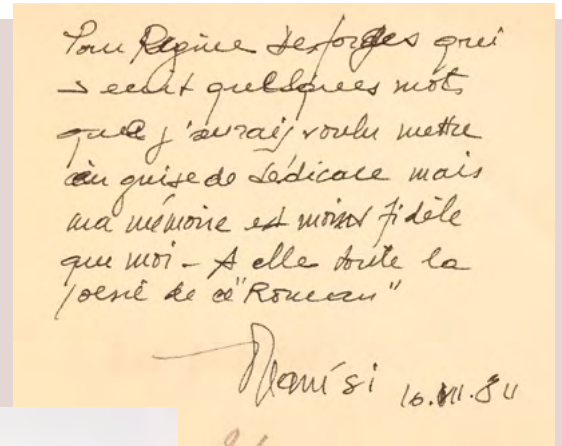 Pour Régine Deforges qui
a écrit quelques mots
que j'aurais voulu mettre
en guise de dédicace mais
ma mémoire est moins fidèle
que moi - A elle toute la
poésie de ce "Roman"
10.VII.84